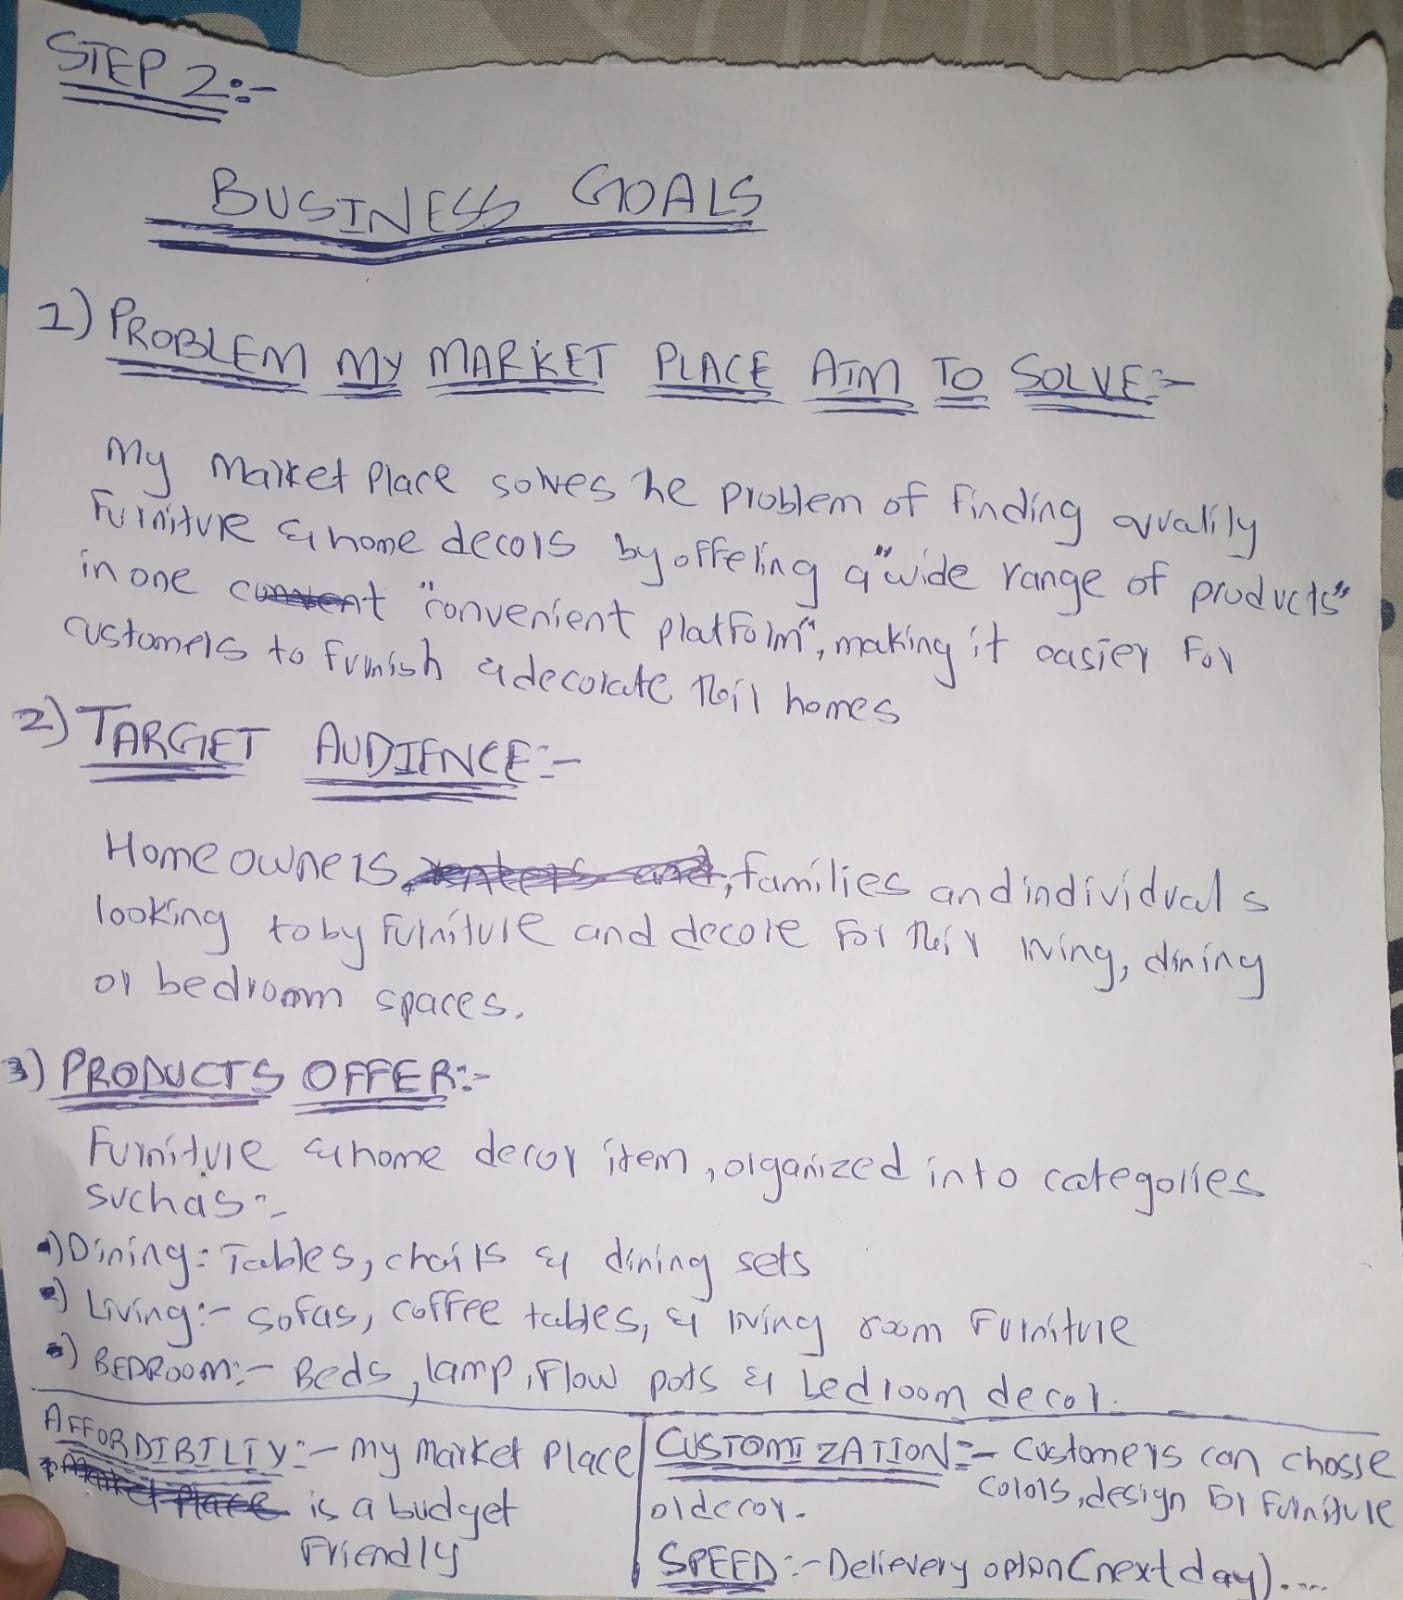 STEP 2:-
BUSINESS GOALS
1) PROBLEM MY MARKET PLACE AIM TO SOLVE:-
My Market Place solves he problem of finding quality
Furniture & home decors by offering a "wide range of products"
in one "convenient platform", making it easier for
customers to furnish & decorate their homes
2) TARGET AUDIENCE:-
Home owners, families and individuals
looking to by furniture and decore for their living, dining
or bedroom spaces.
3) PRODUCTS OFFER:-
Furniture & home decor item, organized into categories
such as:-
•) Dining: Tables, chairs & dining sets
•) Living:- Sofas, coffee tables, & living room Furniture
•) BEDROOM:- Beds, lamp, Flow pots & bedroom decor.
AFFORDIBILTY:- My Market Place
is a budget
Friendly
CUSTOMIZATION:- Customers can chosse
colors, design for Furniture
or decor.
SPEED:- Delievery option (next day)....